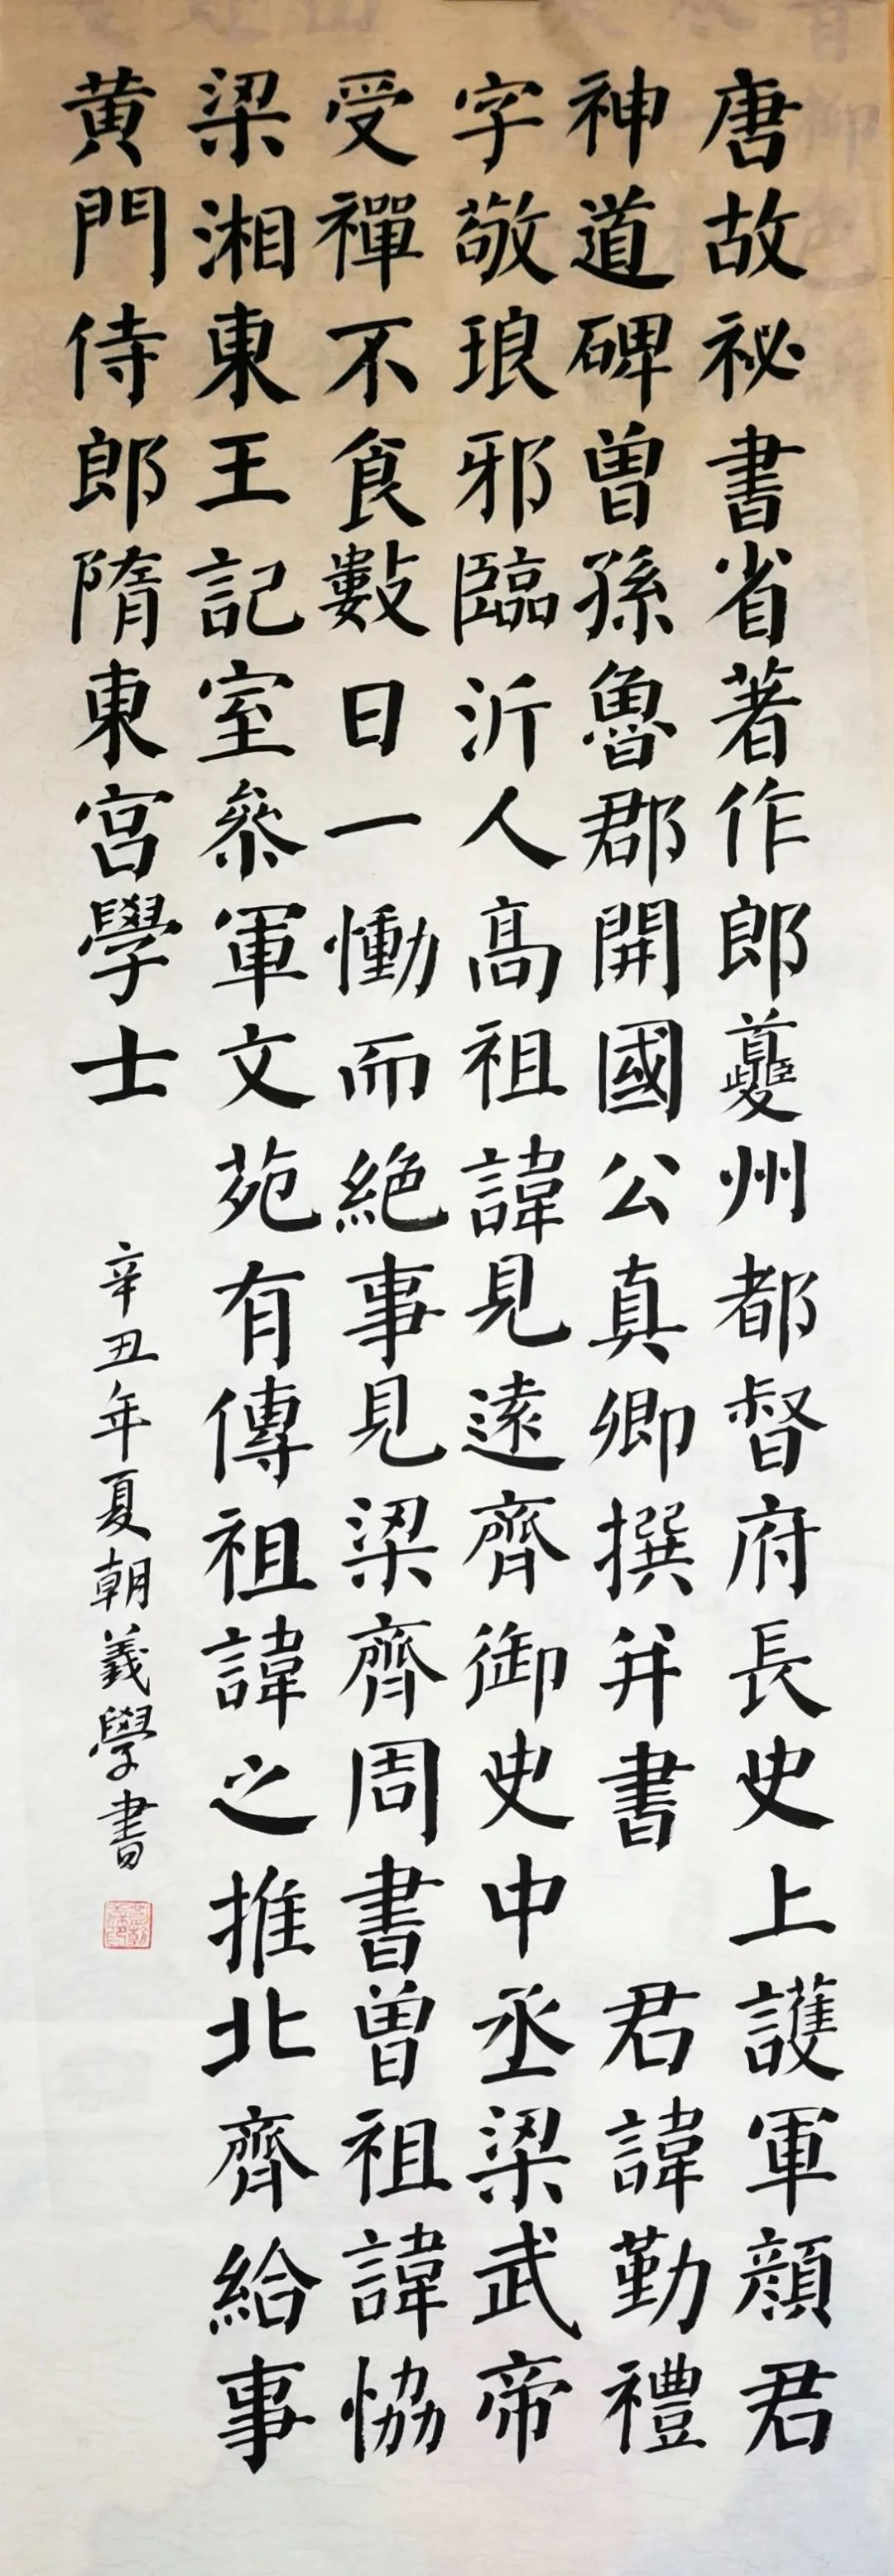 唐故祕書省著作郎夔州都督府長史上護軍顏君
神道碑曾孫魯郡開國公真卿撰并書 君諱勤禮
字敬琅邪臨沂人高祖諱見遠齊御史中丞梁武帝
受禪不食數日一慟而絕事見梁齊周書曾祖諱恊
梁湘東王記室參軍文苑有傳祖諱之推北齊給事
黃門侍郎隋東宮學士
辛丑年夏朝義學書